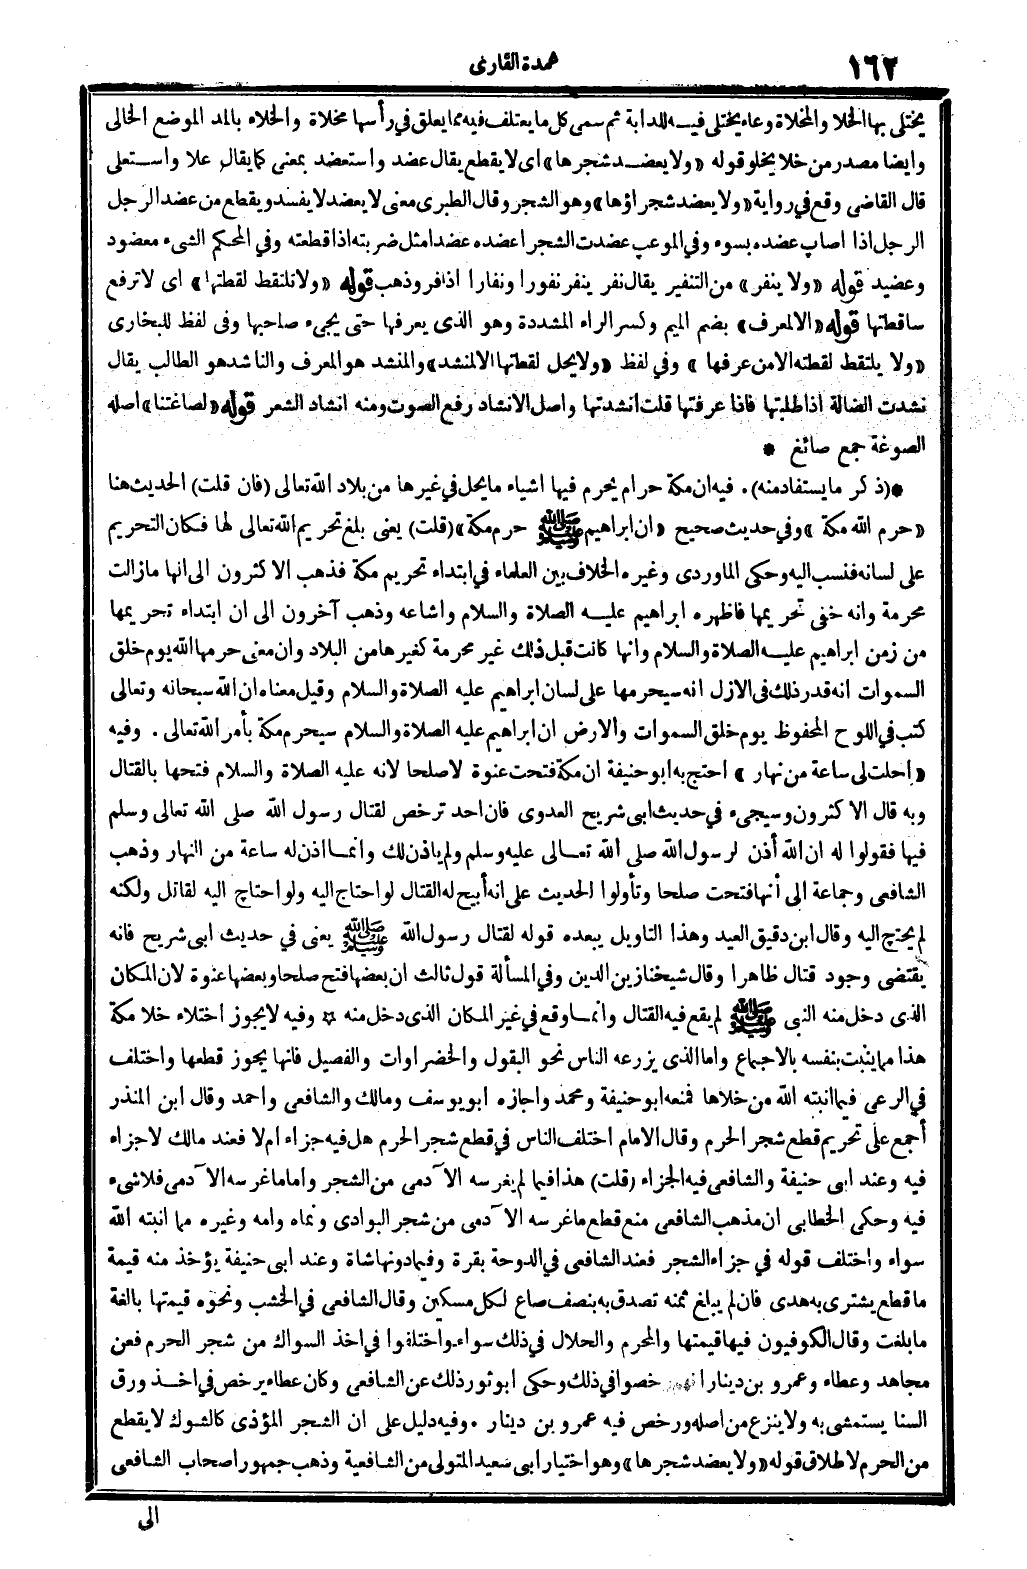 ١٦٢
عمدة القارى
يختلى بها الخلا والمخلاة وعاء يختلى فيه للدابة ثم سمى كل ما يعتلف فيه مما يعلق في رأسها مخلاة والخلاء بالمد الموضع الخالى
وايضا مصدر من خلا يخلو قوله «ولا يعضد شجرها» اى لا يقطع يقال عضد واستعضد بمعنى كما يقال علا واستعلى
قال القاضى وقع في رواية «ولا يعضد شجراؤها» وهو الشجر وقال الطبرى معنى لا يعضد لا يفسد ويقطع من عضد الرجل
الرجل اذا اصاب عضده بسوء وفي الموعب عضدت الشجر اعضده عضدا مثل ضربته اذا قطعته وفي المحكم الشىء معضود
وعضيد قوله «ولا ينفر» من التنفير يقال نفر ينفر نفورا ونفارا اذا فر وذهب قوله «ولا تلتقط لقطتها» اى لا ترفع
ساقطتها قوله «الا لمعرف» بضم الميم وكسر الراء المشددة وهو الذى يعرفها حتى يجىء صاحبها وفى لفظ للبخارى
«ولا يلتقط لقطته الا من عرفها» وفي لفظ «ولا يحل لقطتها الا لمنشد» والمنشد هو المعرف والناشد هو الطالب يقال
نشدت الضالة اذا طلبتها فاذا عرفتها قلت أنشدتها واصل الانشاد رفع الصوت ومنه انشاد الشعر قوله «لصاغتنا» أصله
الصوغة جمع صائغ *
*(ذكر ما يستفاد منه). فيه ان مكة حرام يحرم فيها اشياء مما يحل في غيرها من بلاد الله تعالى (فان قلت) الحديث هنا
«حرم الله مكة» وفي حديث صحيح «ان ابراهيم ﷺ حرم مكة» (قلت) يعنى بلغ تحريم الله تعالى لها فكان التحريم
على لسانه فنسب اليه وحكى الماوردى وغيره الخلاف بين العلماء في ابتداء تحريم مكة فذهب الاكثرون الى انها ما زالت
محرمة وانه خفى تحريمها فاظهره ابراهيم عليه الصلاة والسلام واشاعه وذهب آخرون الى ان ابتداء تحريمها
من زمن ابراهيم عليه الصلاة والسلام وانها كانت قبل ذلك غير محرمة كغيرها من البلاد وان معنى حرمها الله يوم خلق
السموات انه قدر ذلك في الازل انه سيحرمها على لسان ابراهيم عليه الصلاة والسلام وقيل معناه ان الله سبحانه وتعالى
كتب في اللوح المحفوظ يوم خلق السموات والارض ان ابراهيم عليه الصلاة والسلام سيحرم مكة بأمر الله تعالى . وفيه
«احلت لى ساعة من نهار» احتج به ابو حنيفة ان مكة فتحت عنوة لا صلحا لانه عليه الصلاة والسلام فتحها بالقتال
وبه قال الاكثرون وسيجىء في حديث ابى شريح العدوى فان احد ترخص لقتال رسول الله صلى الله تعالى وسلم
فيها فقولوا له ان الله أذن لرسول الله صلى الله تعالى عليه وسلم ولم ياذن لك وانما اذن له ساعة من النهار وذهب
الشافعى وجماعة الى أنها فتحت صلحا وتأولوا الحديث على انه أبيح له القتال لو احتاج اليه ولو احتاج اليه لقاتل ولكنه
لم يحتج اليه وقال ابن دقيق العيد وهذا التاويل يبعده قوله لقتال رسول الله ﷺ يعنى في حديث ابى شريح فانه
يقتضى وجود قتال ظاهرا وقال شيخنا زين الدين وفي المسألة قول ثالث ان بعضها فتح صلحا وبعضها عنوة لان المكان
الذى دخل منه النبى ﷺ لم يقع فيه القتال وانما وقع في غير المكان الذى دخل منه ☆ وفيه لا يجوز اختلاء خلا مكة
هذا مما ينبت بنفسه بالاجماع واما الذى يزرعه الناس نحو البقول والخضراوات والفصيل فانها يجوز قطعها واختلف
في الرعى فيما انبته الله من خلاها فمنعه ابو حنيفة ومحمد واجازه ابو يوسف ومالك والشافعى واحمد وقال ابن المنذر
أجمع على تحريم قطع شجر الحرم وقال الامام اختلف الناس في قطع شجر الحرم هل فيه جزاء ام لا فعند مالك لا جزاء
فيه وعند ابى حنيفة والشافعى فيه الجزاء (قلت) هذا فيما لم يغرسه الآدمى من الشجر واما ما غرسه الآدمى فلا شىء
فيه وحكى الخطابى ان مذهب الشافعى منع قطع ما غرسه الآدمى من شجر البوادى ونماه وانه وغيره مما انبته الله
سواء واختلف قوله في جزاء الشجر فعند الشافعى في الدوحة بقرة وفيما دونها شاة وعند ابى حنيفة يؤخذ منه قيمة
ما قطع يشترى به هدى فان لم يبلغ ثمنه تصدق به بنصف صاع لكل مسكين وقال الشافعى في الخشب ونحوه قيمتها بالغة
ما بلغت وقال الكوفيون فيها قيمتها والمحرم والحلال في ذلك سواء واختلفوا في اخذ السواك من شجر الحرم فعن
مجاهد وعطاء وعمرو بن دينار انهم رخصوا في ذلك وحكى ابو ثور ذلك عن الشافعى وكان عطاء يرخص في اخذ ورق
السنا يستمشى به ولا ينزع من اصله ورخص فيه عمرو بن دينار . وفيه دليل على ان الشجر المؤذى كالشوك لا يقطع
من الحرم لاطلاق قوله «ولا يعضد شجرها» وهو اختيار ابى سعيد المتولى من الشافعية وذهب جمهور اصحاب الشافعى
الى